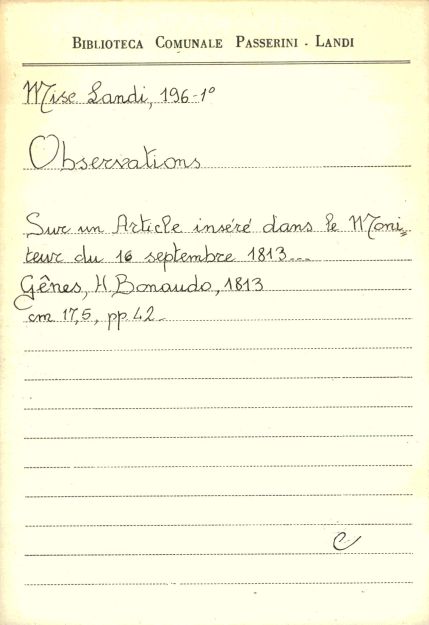 BIBLIOTECA COMUNALE PASSERINI - LANDI
Misc Landi, 196-1°
Observations
Sur un Article inséré dans le Moni=
teur du 16 septembre 1813...
Gênes, H. Bonaudo, 1813
cm 17,5, pp 42.
C